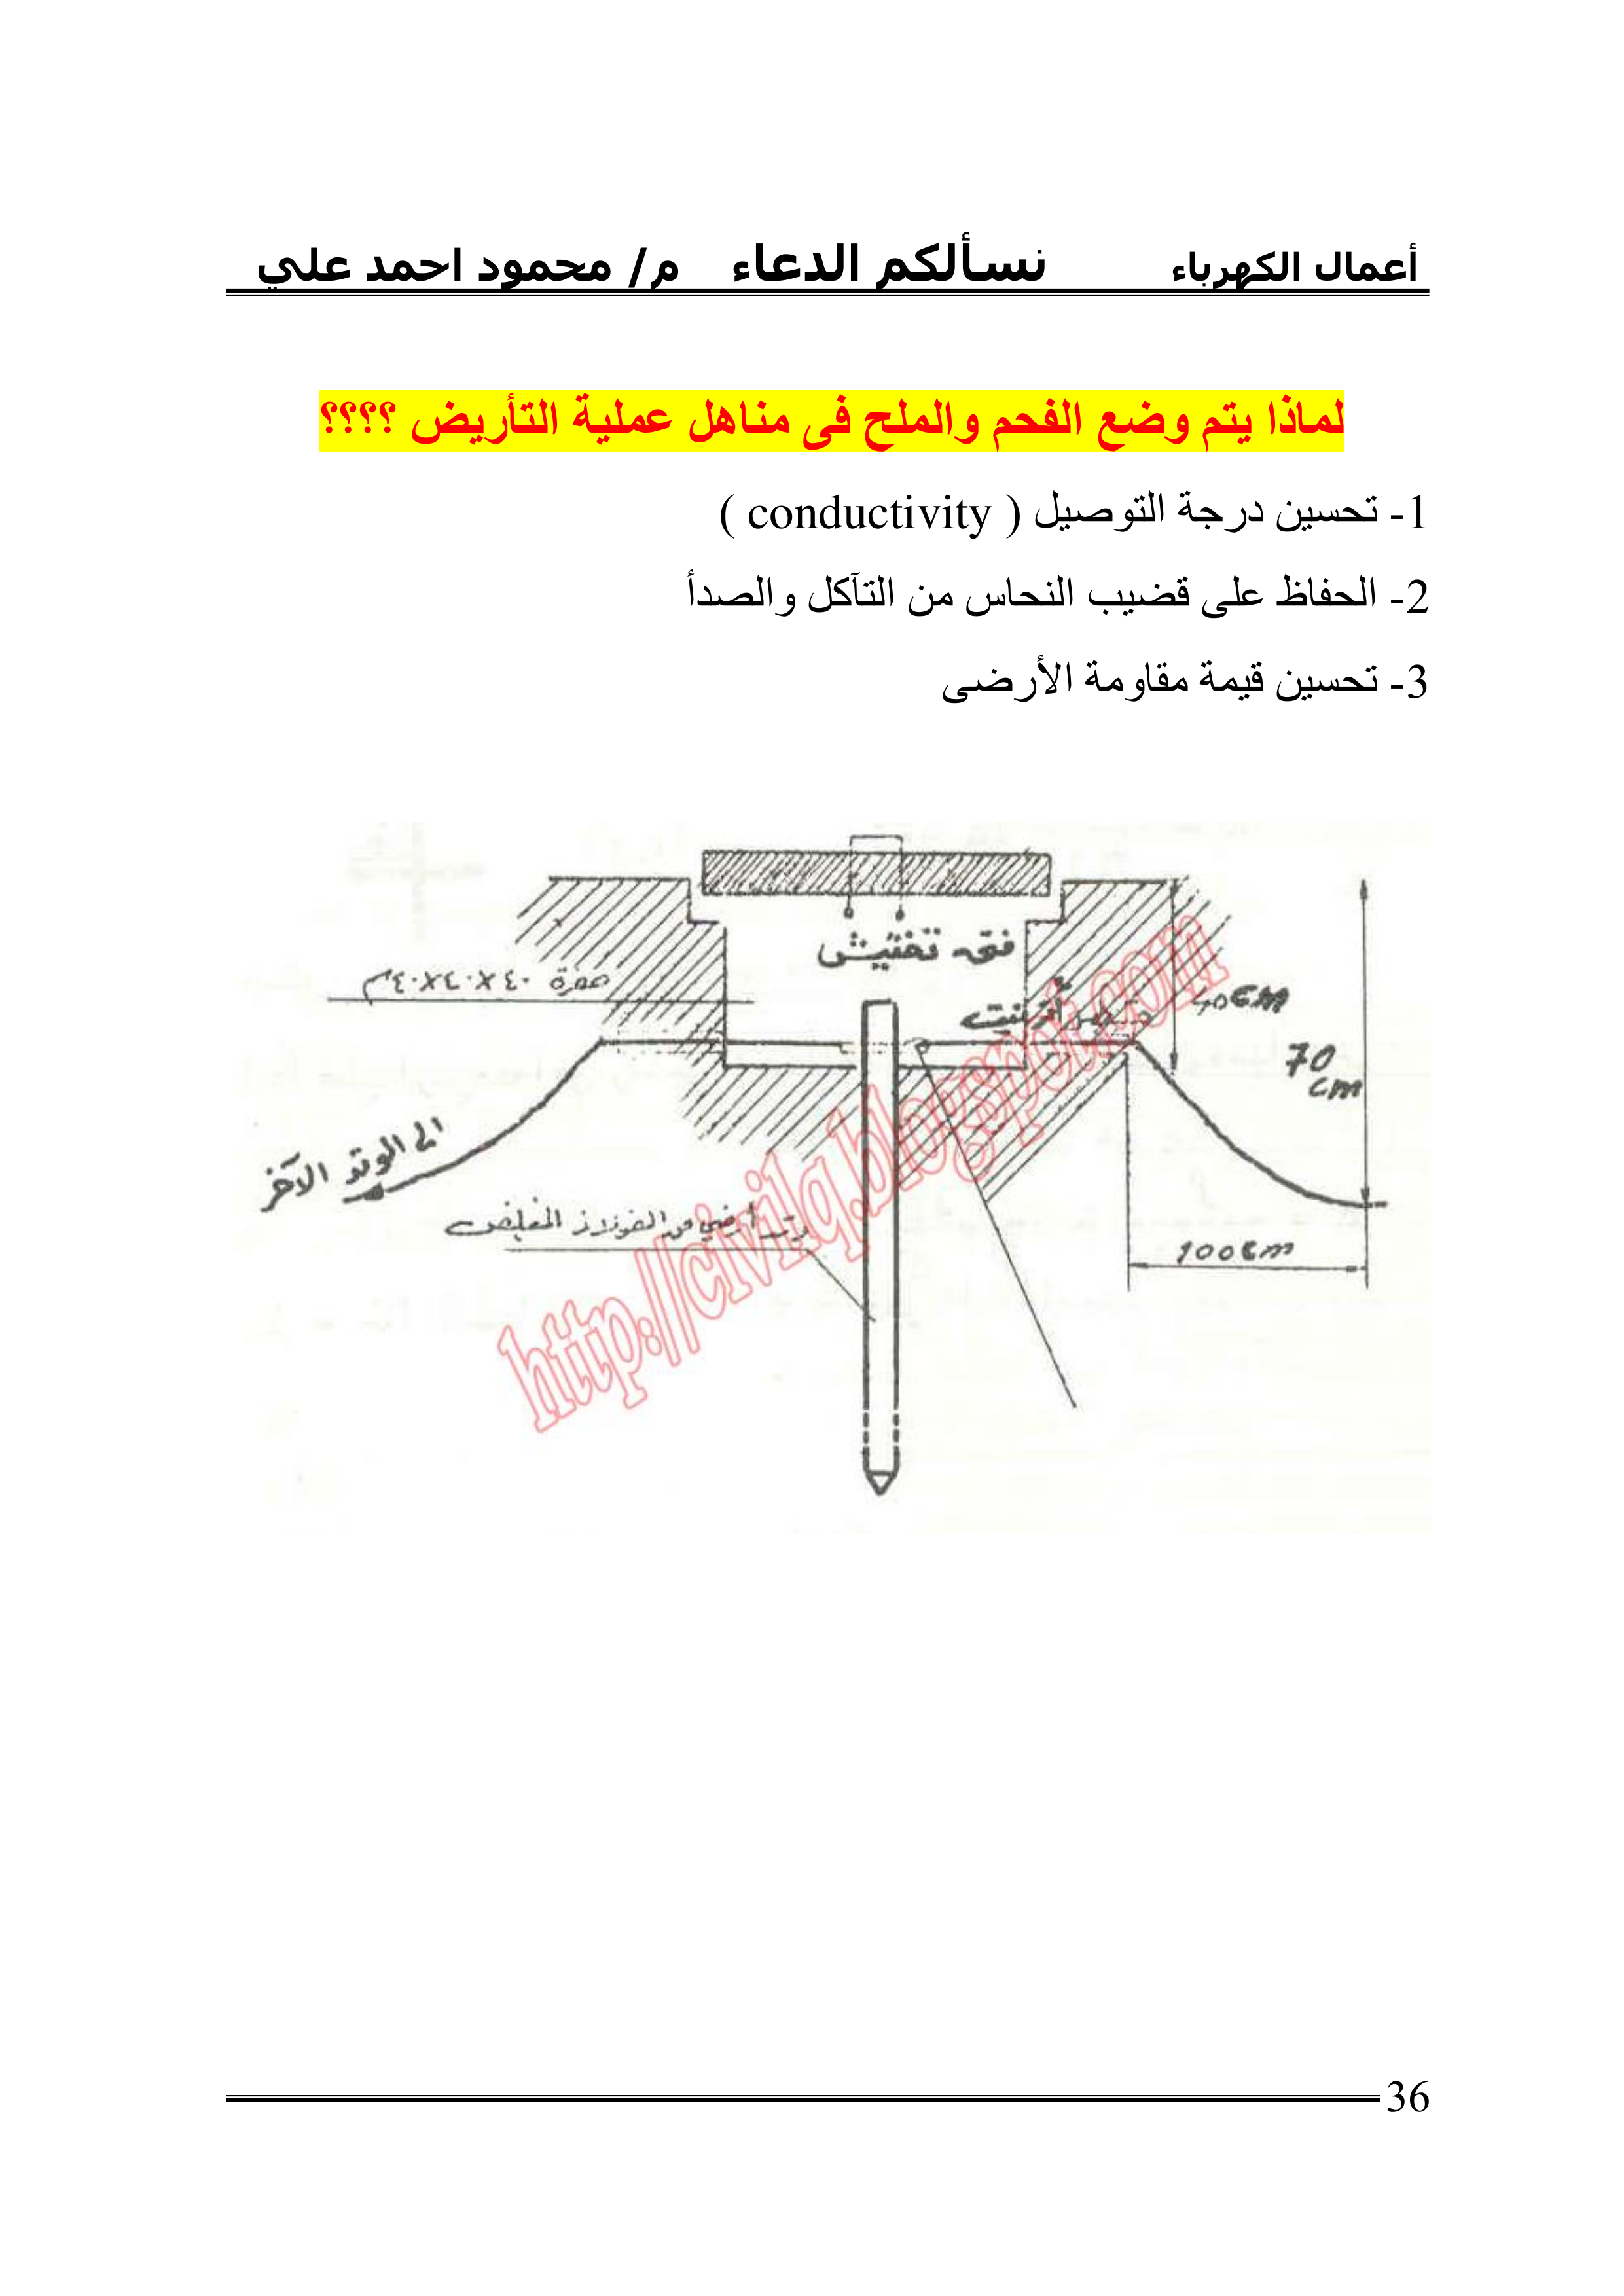 أعمال الكهرباء نسألكم الدعاء م/ محمود احمد علي
لماذا يتم وضع الفحم والملح فى مناهل عملية التأريض ؟؟؟؟
1- تحسين درجة التوصيل ( conductivity )
2- الحفاظ على قضيب النحاس من التآكل والصدأ
3- تحسين قيمة مقاومة الأرضى
تفتيش
حفرة ٤٠x٤٠x٤٠م
70
cm
الى الوتد الآخر
وتد أرضي من الفولاذ المغلفن
100cm
http://civilq.blogspot.com
36